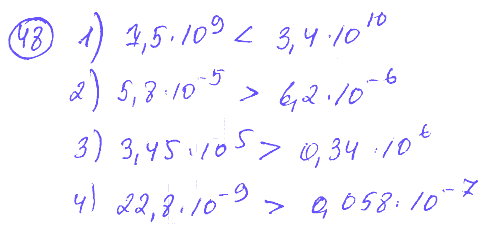 48 1) 7,5·10⁹ < 3,4·10¹⁰
2) 5,8·10⁻⁵ > 6,2·10⁻⁶
3) 3,45·10⁵ > 0,34·10⁶
4) 22,8·10⁻⁹ > 0,058·10⁻⁷